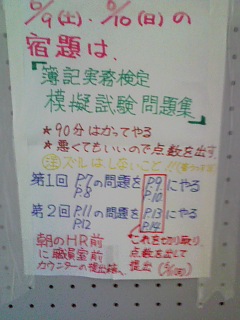 9(土)、10(日)の
宿題は、
「簿記実務検定
模擬試験問題集」
★90分はかってやる
★悪くてもいいので点数を出す
注 ズルはしないこと!!
第1回 P.7 P.8 の問題を P.9 P.10 にやる
第2回 P.11 P.12 の問題を P.13 P.14 にやる
朝のHR前
に職員室前
カウンターの提出箱へ
これを切り取り、
点数を出して
提出